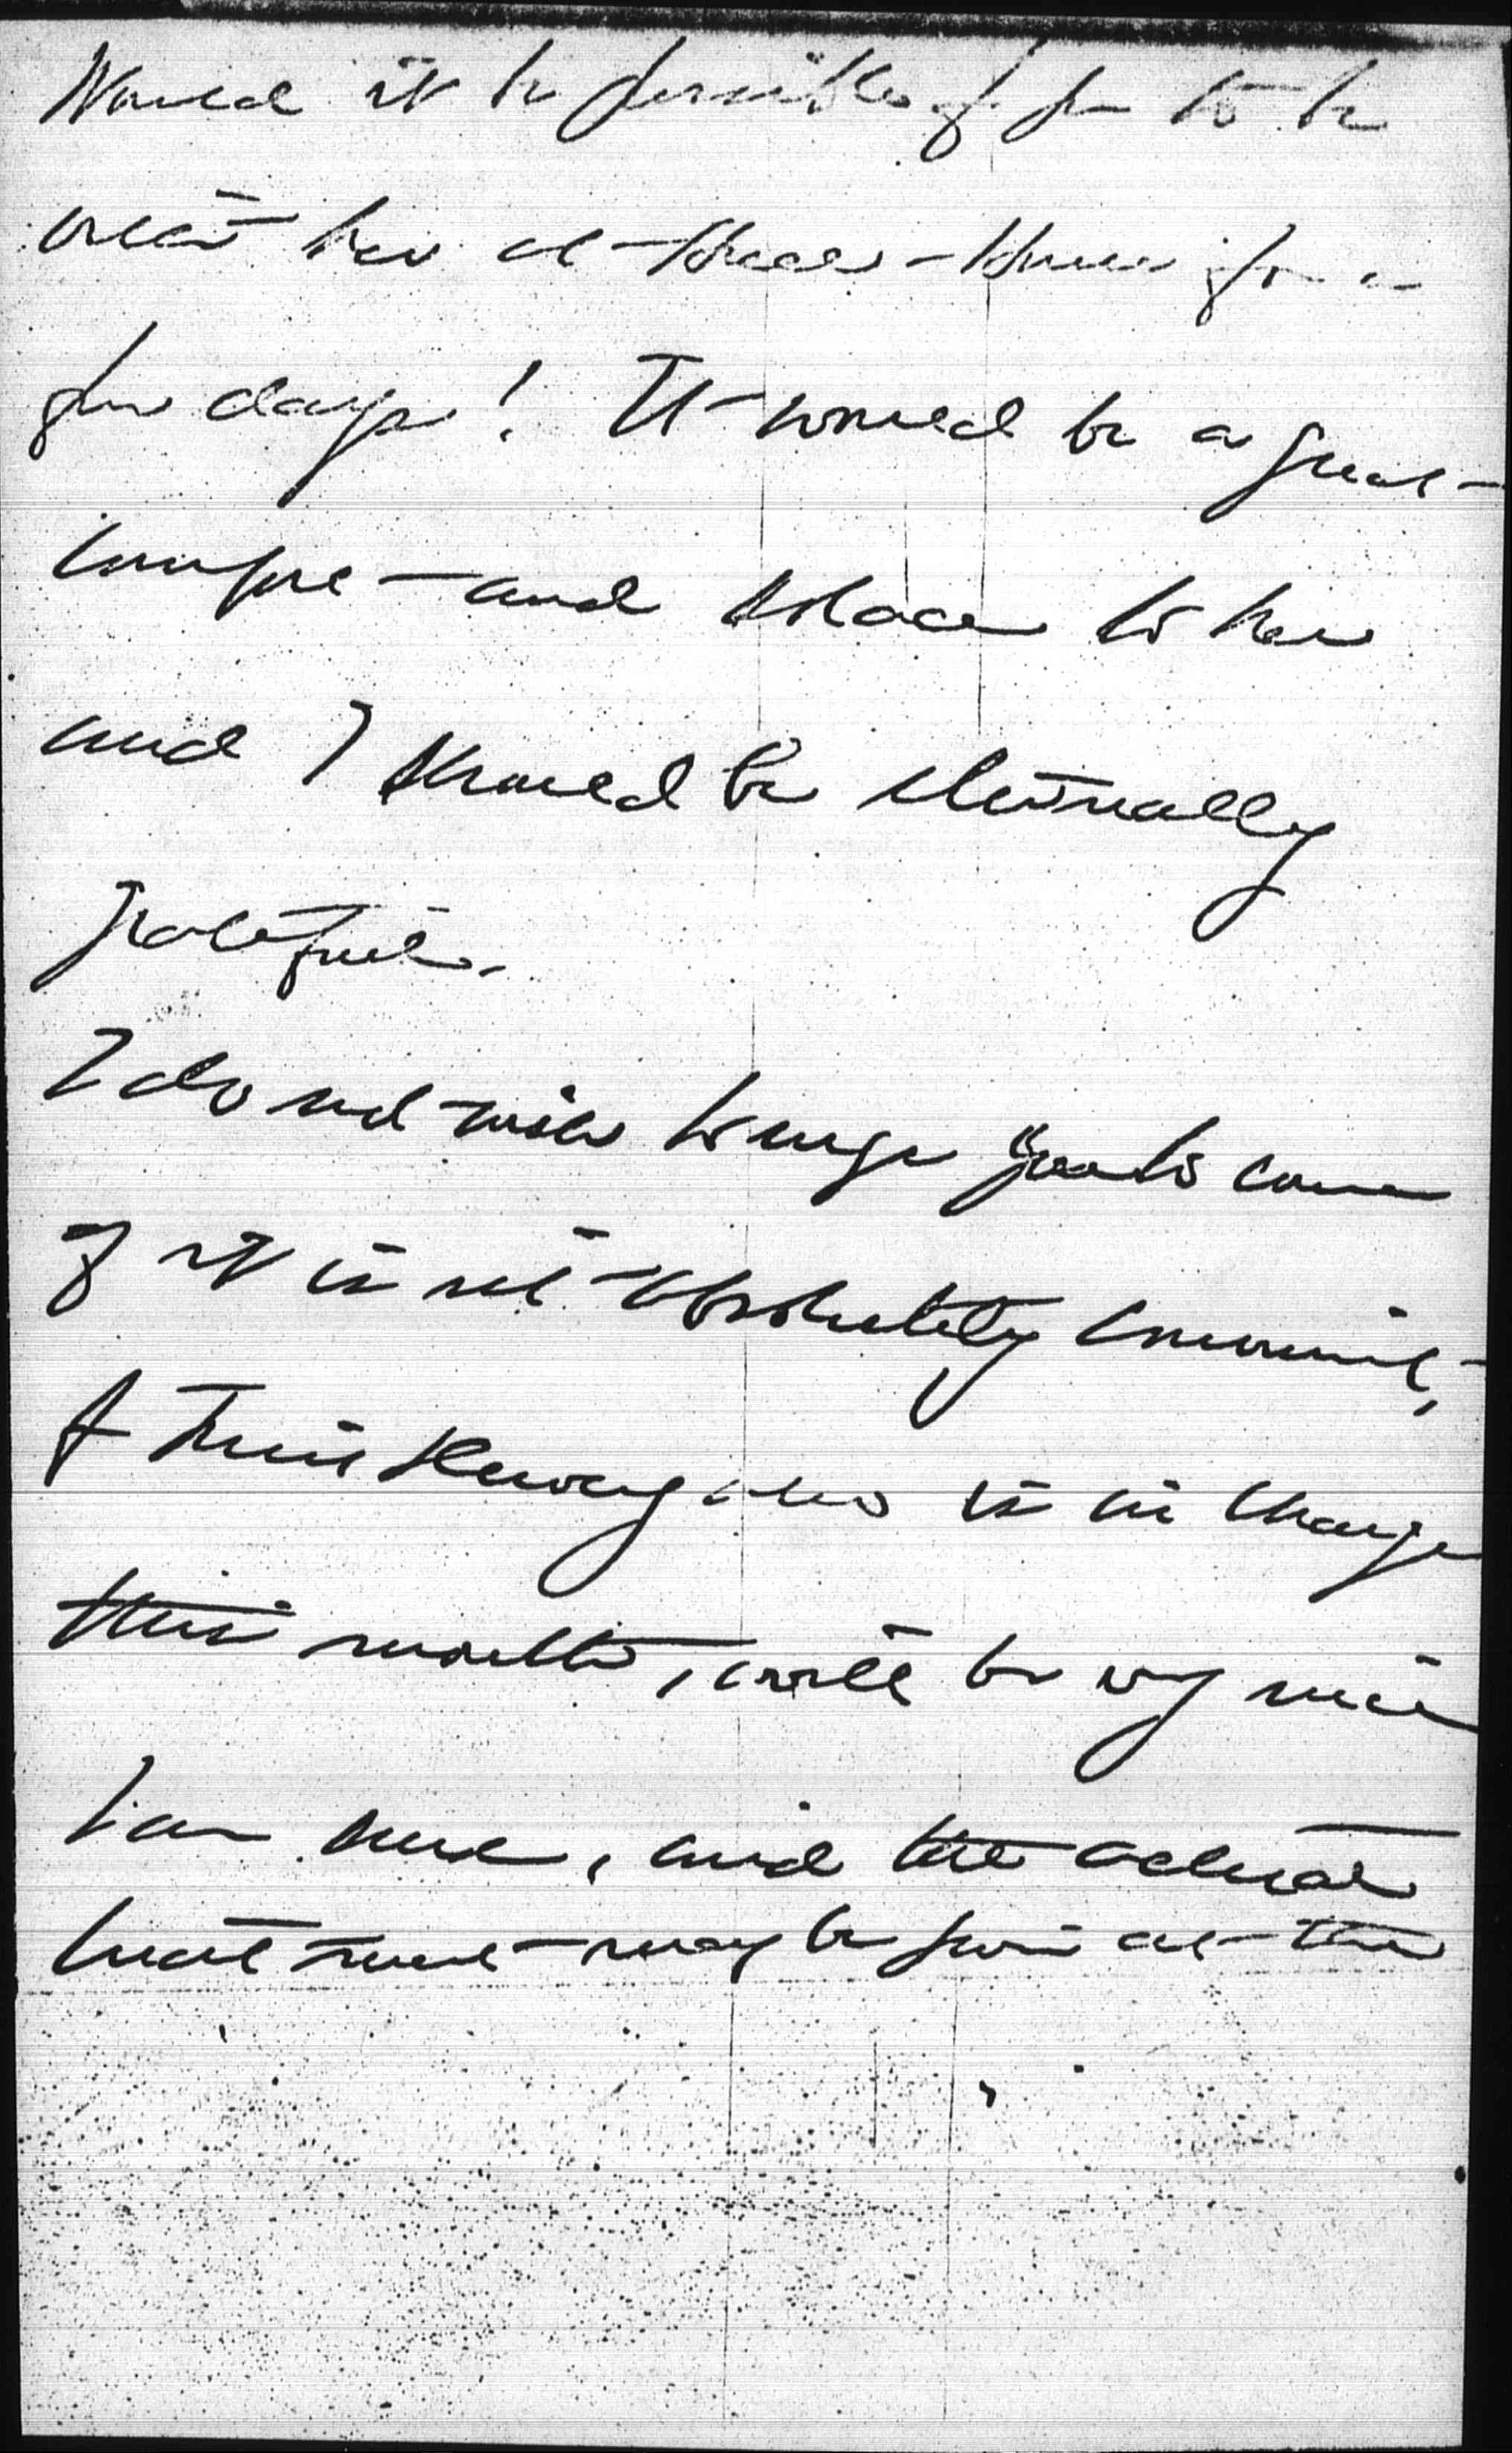 Would it be possible for you to be
with her at – House for a
few days! It would be a great
comfort and solace to her
and I should be eternally
grateful.
I do not wish to urge you to come
if it is not absolutely convenient,
is in charge
this month, will be very nice
I am sure, and the actual
treatment may be given at the